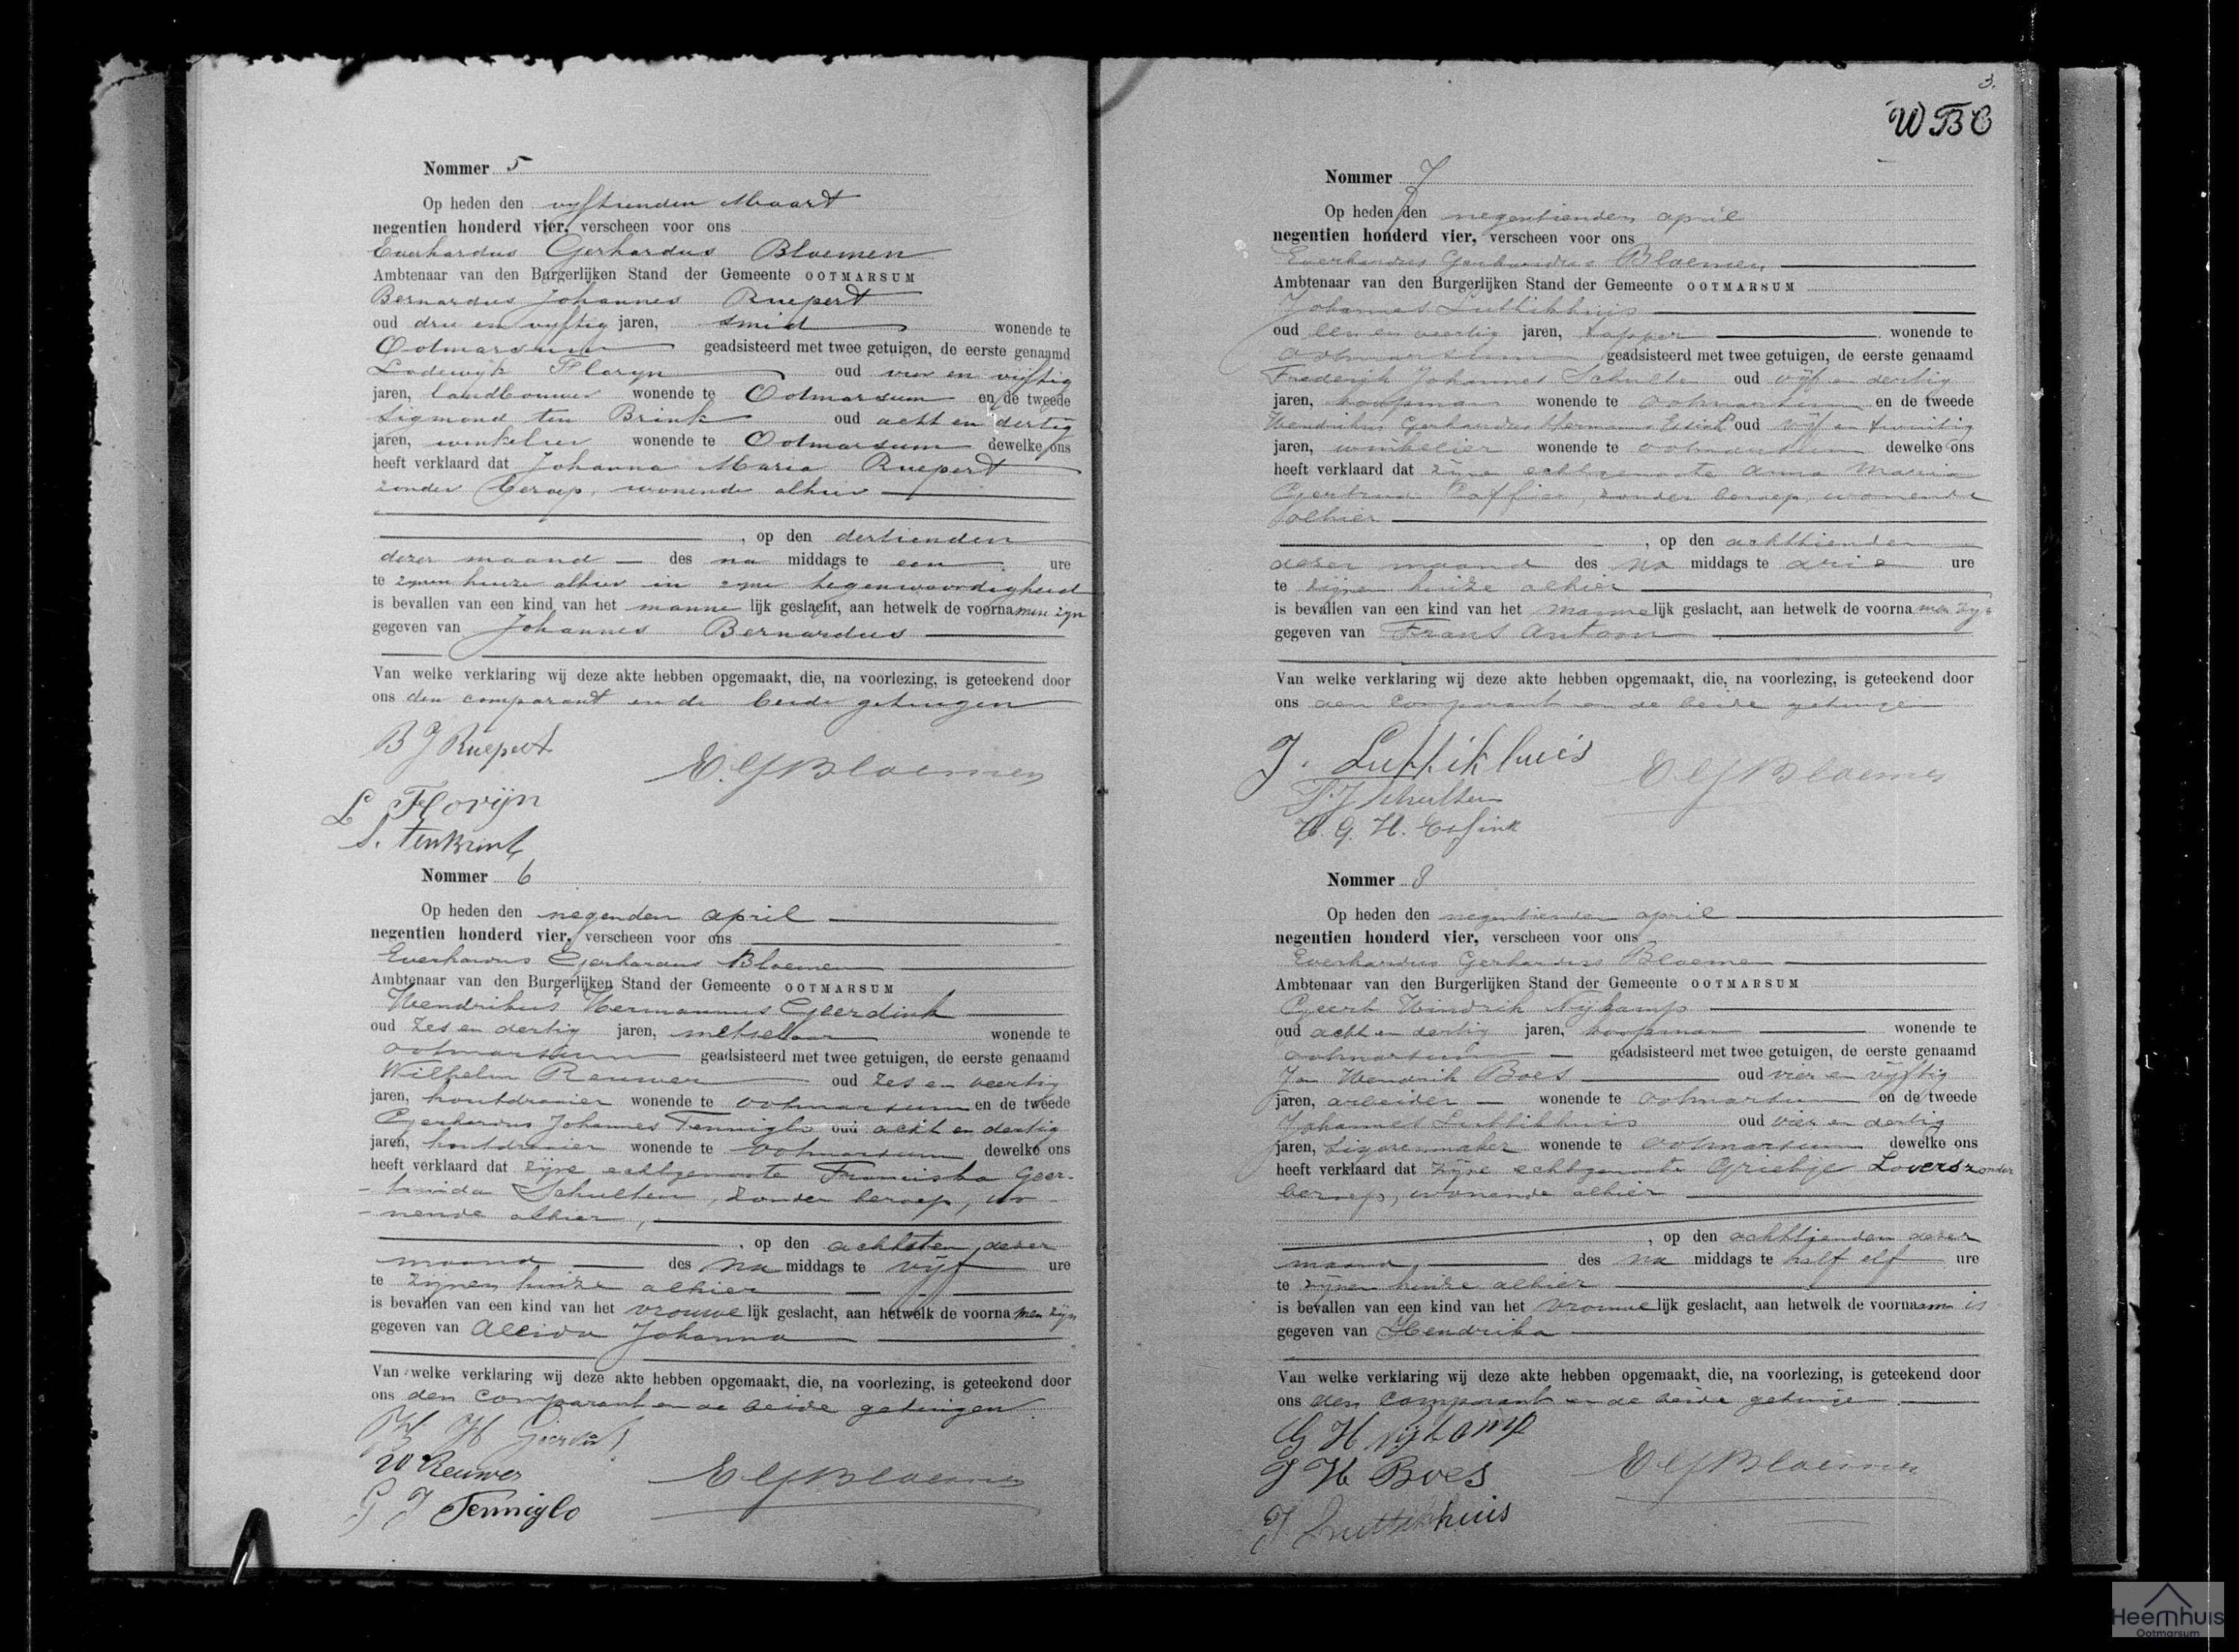 Nommer 5
Op heden den vyftienden Maart
negentien honderd vier, verscheen voor ons
Everhardus Gerhardus Bloemen
Ambtenaar van den Burgerlijken Stand der Gemeente OOTMARSUM
Bernardus Johannes Ruepert
oud drie en vyftig jaren, smid wonende te
Ootmarsum geadsisteerd met twee getuigen, de eerste genaamd
Lodewyk Floryn oud vier en vijftig
jaren, landbouwer wonende te Ootmarsum en de tweede
Sigmond ten Brink oud acht en dertig
jaren, winkelier wonende te Ootmarsum dewelke ons
heeft verklaard dat Johanna Maria Ruepert
zonder beroep, wonende alhier
, op den dertienden
dezer maand des na middags te een ure
te zynen huize alhier in zyne tegenwoordigheid
is bevallen van een kind van het manne lijk geslacht, aan hetwelk de voorna men zyn
gegeven van Johannes Bernardus
Van welke verklaring wij deze akte hebben opgemaakt, die, na voorlezing, is geteekend door
ons den comparant en de beide getuigen
B J Ruepert
E.G Bloemen
L Florijn
S. ten Brink
Nommer 6
Op heden den negenden april
negentien honderd vier, verscheen voor ons
Everhardus Gerhardus Bloemen
Ambtenaar van den Burgerlijken Stand der Gemeente OOTMARSUM
Hendrikus Hermannus Geerdink
oud zes en dertig jaren, metselaar wonende te
ootmarsum geadsisteerd met twee getuigen, de eerste genaamd
Wilhelm Reuwer oud zes en veertig
jaren, houtdraaier wonende te ootmarsum en de tweede
Gerhardus Johannes Tenniglo oud acht en dertig
jaren, houtdraaier wonende te ootmarsum dewelke ons
heeft verklaard dat zijne echtgenoote Franciska Geer-
- truida Schulten, zonder beroep, wo-
- nende alhier,
, op den achtsten dezer
maand des na middags te vijf ure
te zijnen huize alhier
is bevallen van een kind van het vrouwe lijk geslacht, aan hetwelk de voorna men zijn
gegeven van Aleida Johanna
Van welke verklaring wij deze akte hebben opgemaakt, die, na voorlezing, is geteekend door
ons den comparant en de beide getuigen
H H Geerdink
W Reuwer
E G Bloemen
G J Tenniglo
3.
WBC
Nommer 7
Op heden den negentienden april
negentien honderd vier, verscheen voor ons
Everhardus Gerhardus Bloemen
Ambtenaar van den Burgerlijken Stand der Gemeente OOTMARSUM
Johannes Luttikhuis
oud een en veertig jaren, tapper wonende te
ootmarsum geadsisteerd met twee getuigen, de eerste genaamd
Frederik Johannes Schulten oud vijf en dertig
jaren, koopman wonende te ootmarsum en de tweede
Hendrikus Gerhardus Hermannus oud vijf en twintig
jaren, winkelier wonende te ootmarsum dewelke ons
heeft verklaard dat zijne echtgenoote Anna Maria
Geertrui zonder beroep, wonende
alhier
, op den achttienden
dezer maand des na middags te drie ure
te zijnen huize alhier
is bevallen van een kind van het manne lijk geslacht, aan hetwelk de voorna men zijn
gegeven van Frans Antoon
Van welke verklaring wij deze akte hebben opgemaakt, die, na voorlezing, is geteekend door
ons den comparant en de beide getuigen
J. Luttikhuis
E G Bloemen
F. J Schulten
H. G. H. Essink
Nommer 8
Op heden den negentienden april
negentien honderd vier, verscheen voor ons
Everhardus Gerhardus Bloemen
Ambtenaar van den Burgerlijken Stand der Gemeente OOTMARSUM
Geert Hindrik Nijkamp
oud acht en dertig jaren, koopman wonende te
ootmarsum geadsisteerd met twee getuigen, de eerste genaamd
Jan Hendrik Boes oud vier en vijftig
jaren, arbeider wonende te ootmarsum en de tweede
Johannes Luttikhuis oud vier en dertig
jaren, sigarenmaker wonende te ootmarsum dewelke ons
heeft verklaard dat zijne echtgenoote Grietje Lovers zonder
beroep, wonende alhier
, op den achttienden dezer
maand des na middags te half elf ure
te zijnen huize alhier
is bevallen van een kind van het vrouwe lijk geslacht, aan hetwelk de voorna am is
gegeven van Hendrika
Van welke verklaring wij deze akte hebben opgemaakt, die, na voorlezing, is geteekend door
ons den comparant en de beide getuigen
G H Nijkamp
J H Boes
E G Bloemen
J Luttikhuis
Heemhuis
Ootmarsum